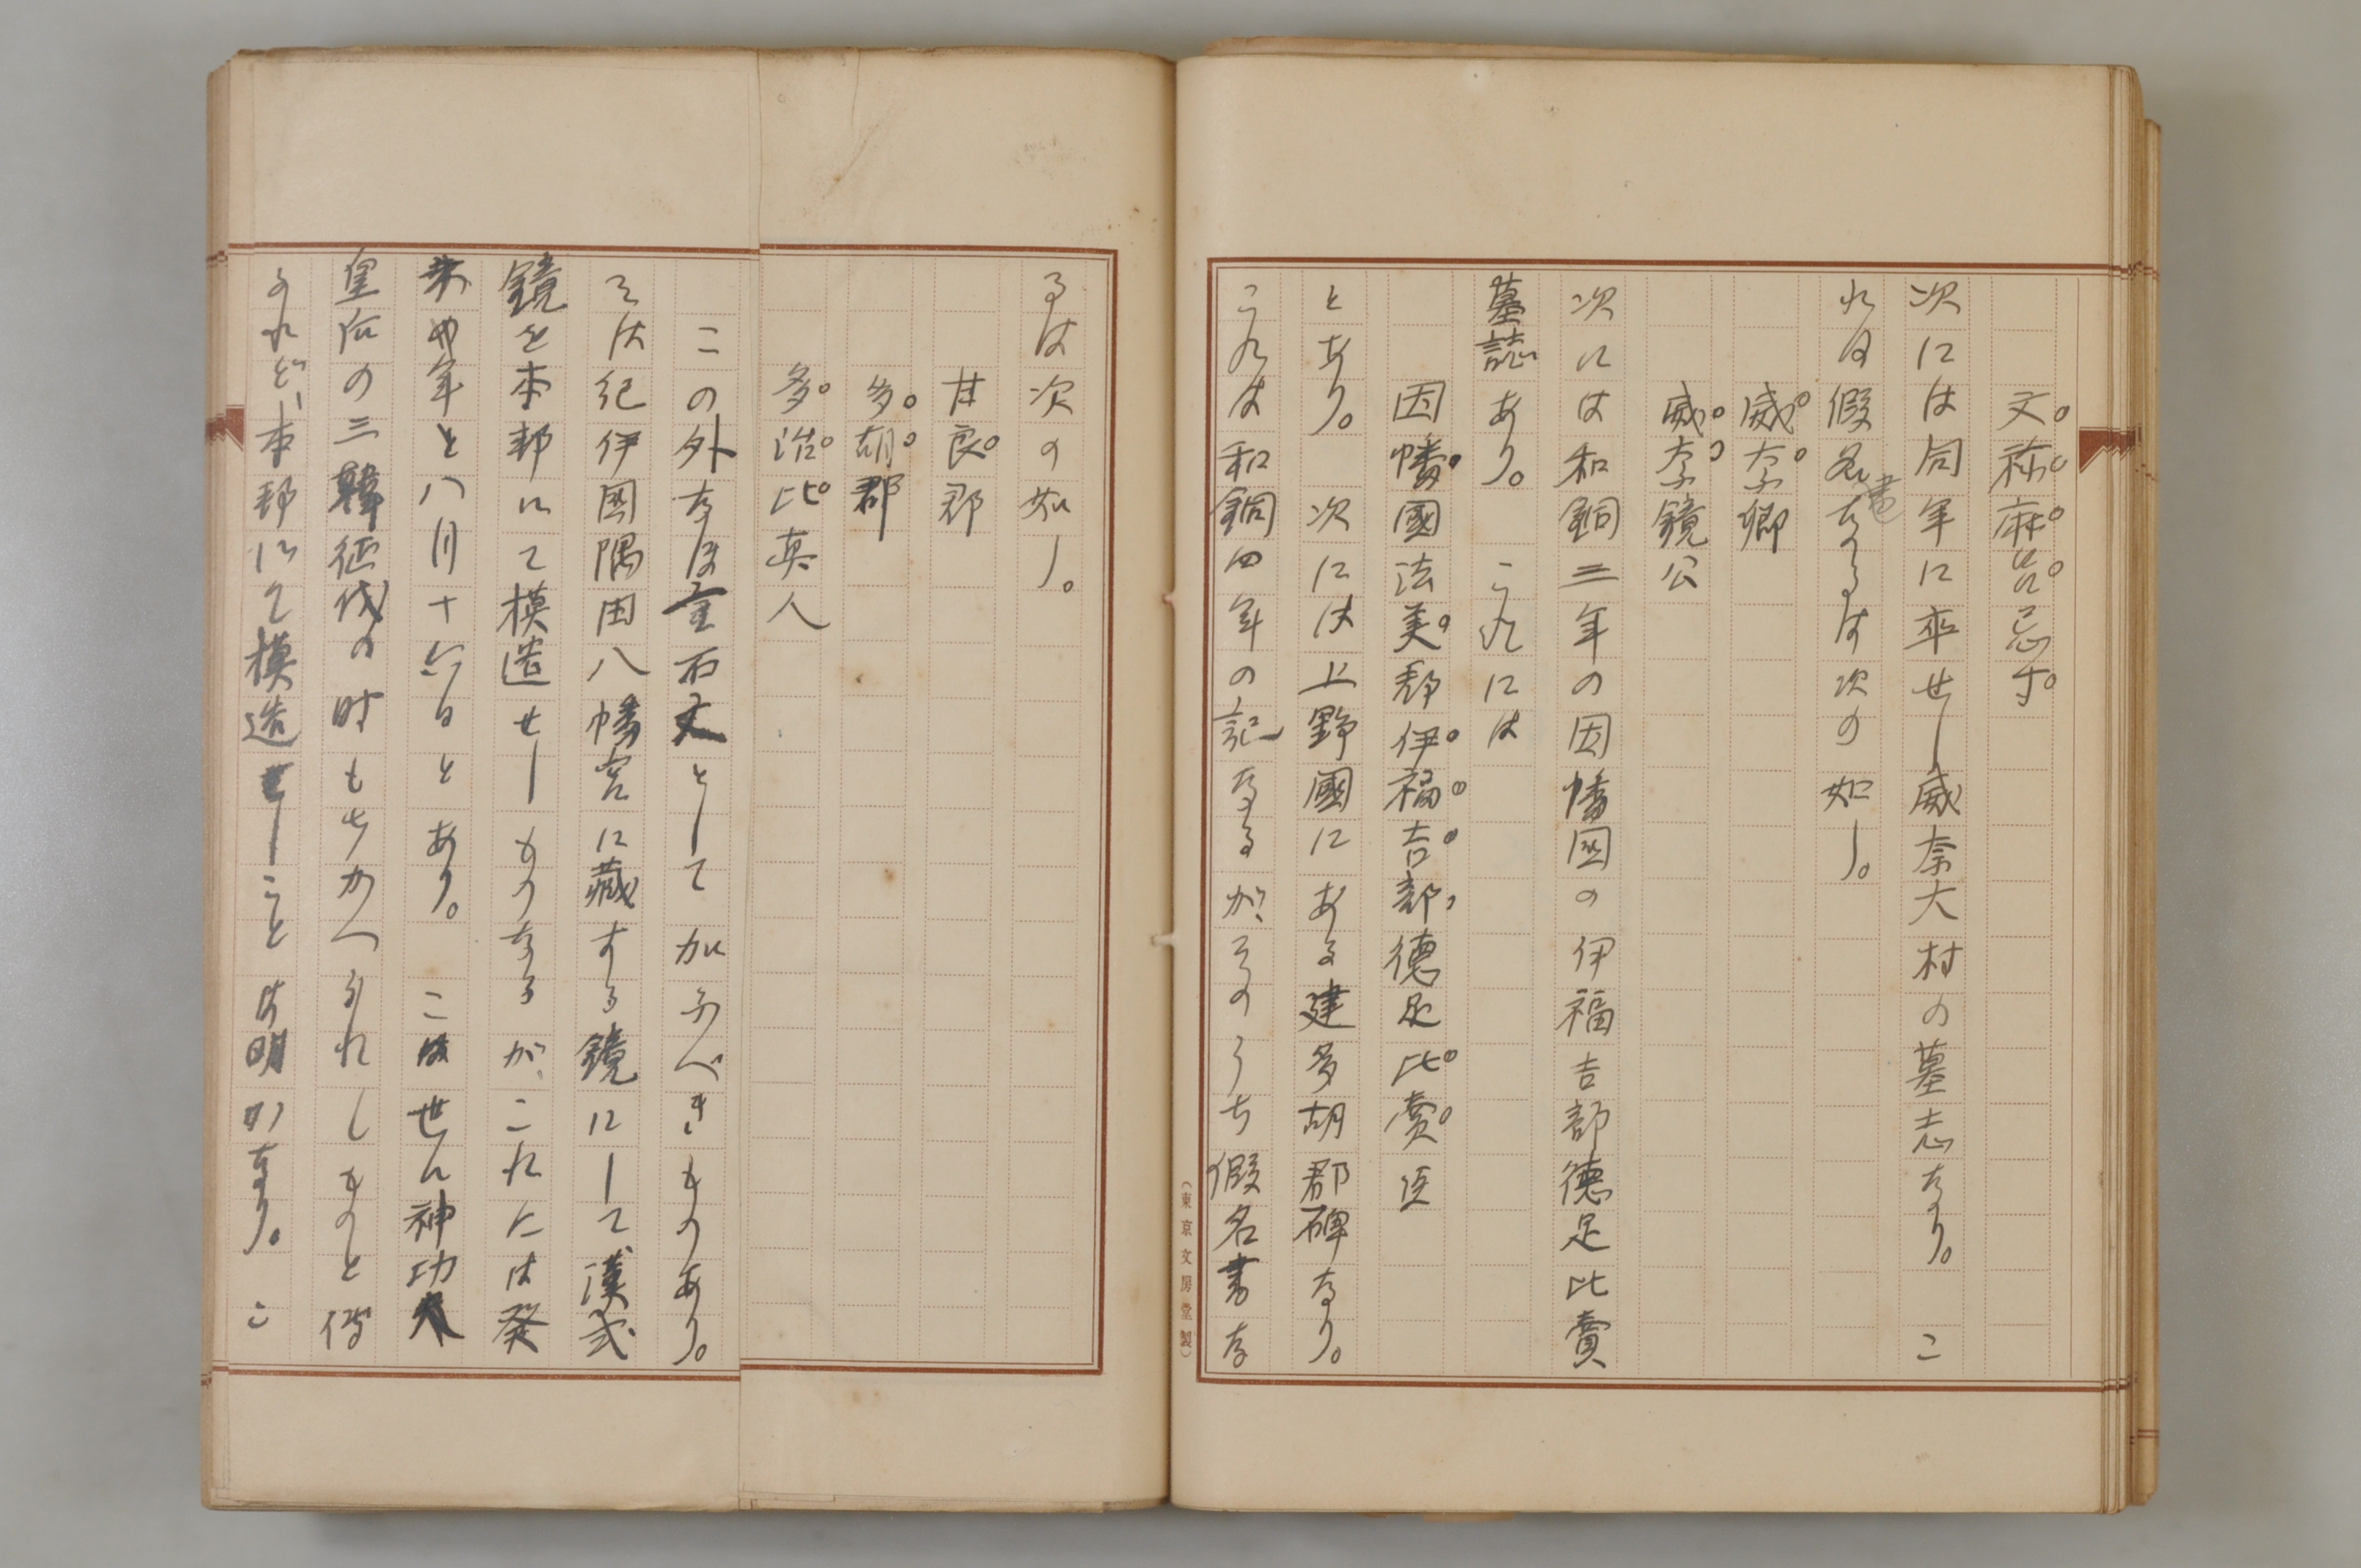 文祢麻呂忌寸
次には同年に卒せし威奈大村の墓志なり。こ
れは假名書なるは次の如し。
威奈卿
威奈鏡公
次には和銅三年の因幡国の伊福吉部徳足比賣
墓誌あり。これには
因幡國法美郡伊福吉部徳足比賣臣
とあり。次には上野國にある建多胡郡碑なり。
これは和銅四年の記なるが、そのうち假名書な
るは次の如し。
甘良郡
多胡郡
多治比真人
この外なほ金石文として加ふべきものあり。
そは紀伊國隅田八幡宮に藏する鏡にして、漢式
鏡を本邦にて模造せしものなるが、これには癸
未年八月十六日とあり。こは世に神功
皇后の三韓征伐の時もちかへられしものと傳
ふれど、本邦にて模造せしことは明かなり。こ
（東京文房堂製）